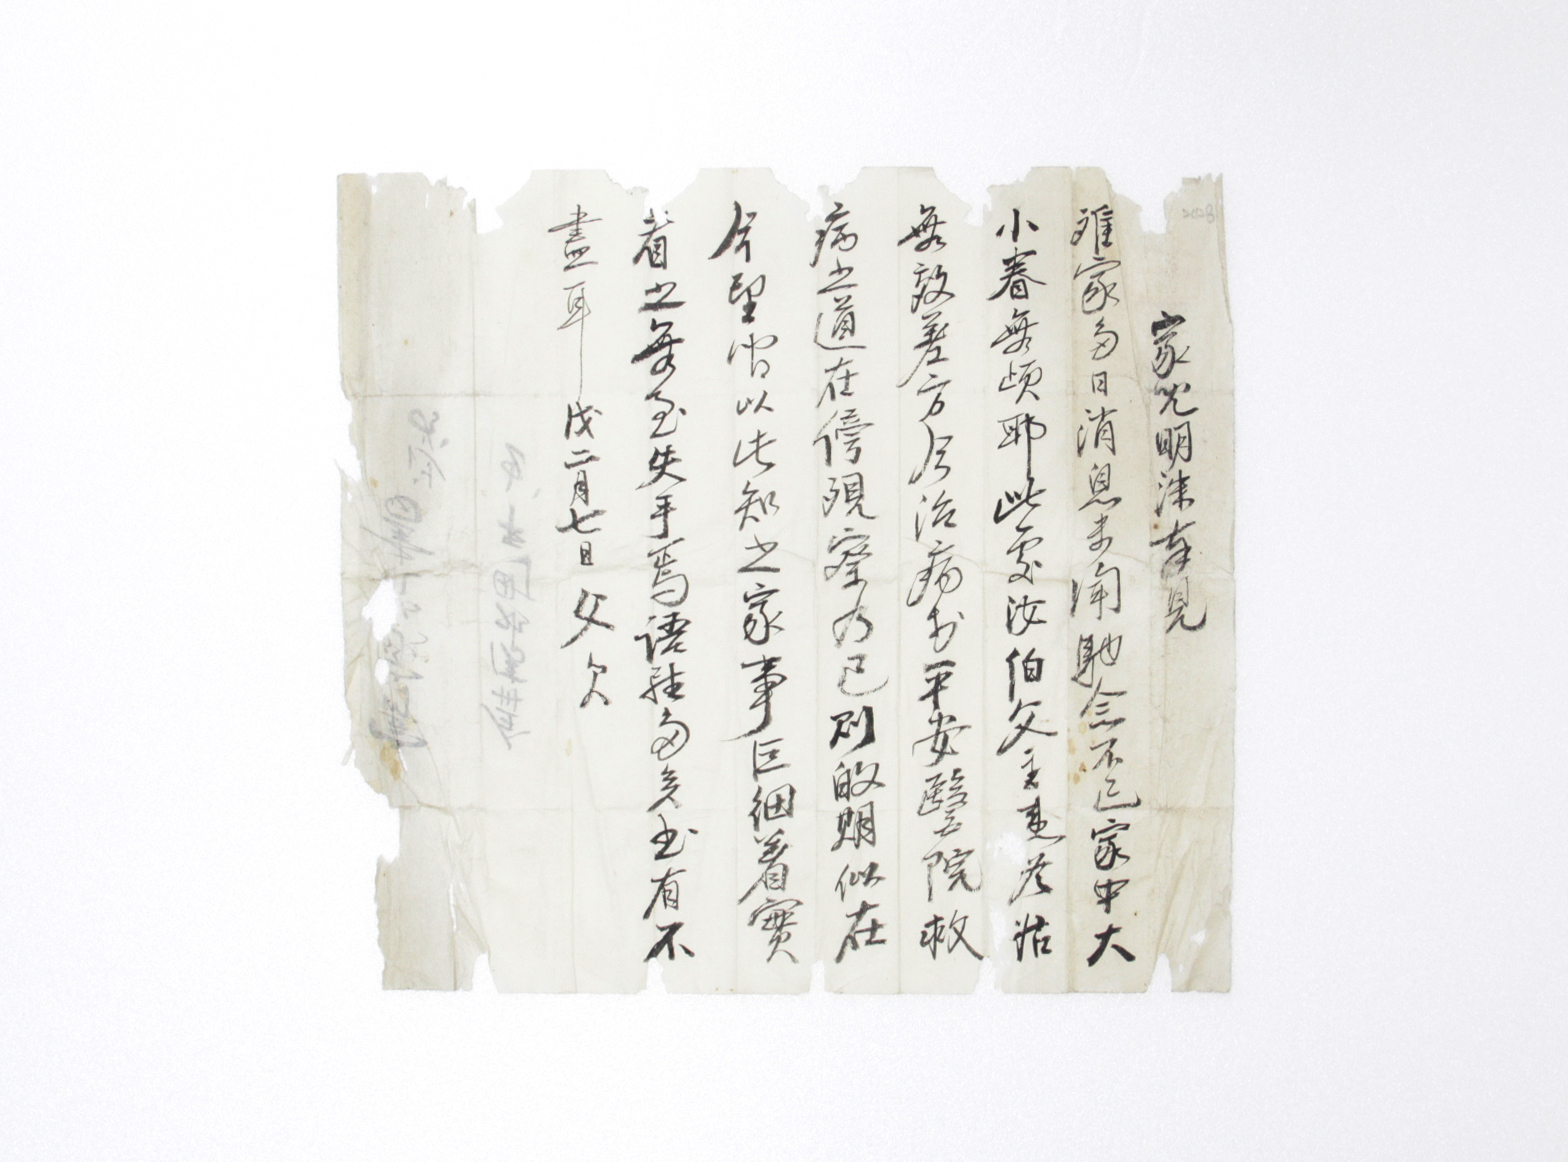 家兒明洙奉見
離家多日消息未聞馳念不已家中大
小眷無頉耶此處汝伯父主患苦
無效差方今治病於平安醫院救
病之道在傍現察乃已則的期似在
今望間以此知之家事巨細着實
看之無至失手焉語雖多矣書有不
盡耳 戊二月七日 父欠